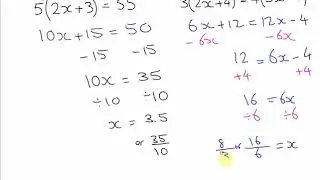 5(2x+3) = 55
10x+15 = 50
-15 -15
10x = 35
÷10 ÷10
x = 3.5
or 35/10
3(2x+4) =
6x+12 = 12x-4
-6x -6x
12 = 6x-4
+4 +4
16 = 6x
÷6 ÷6
8/3 or 16/6 = x